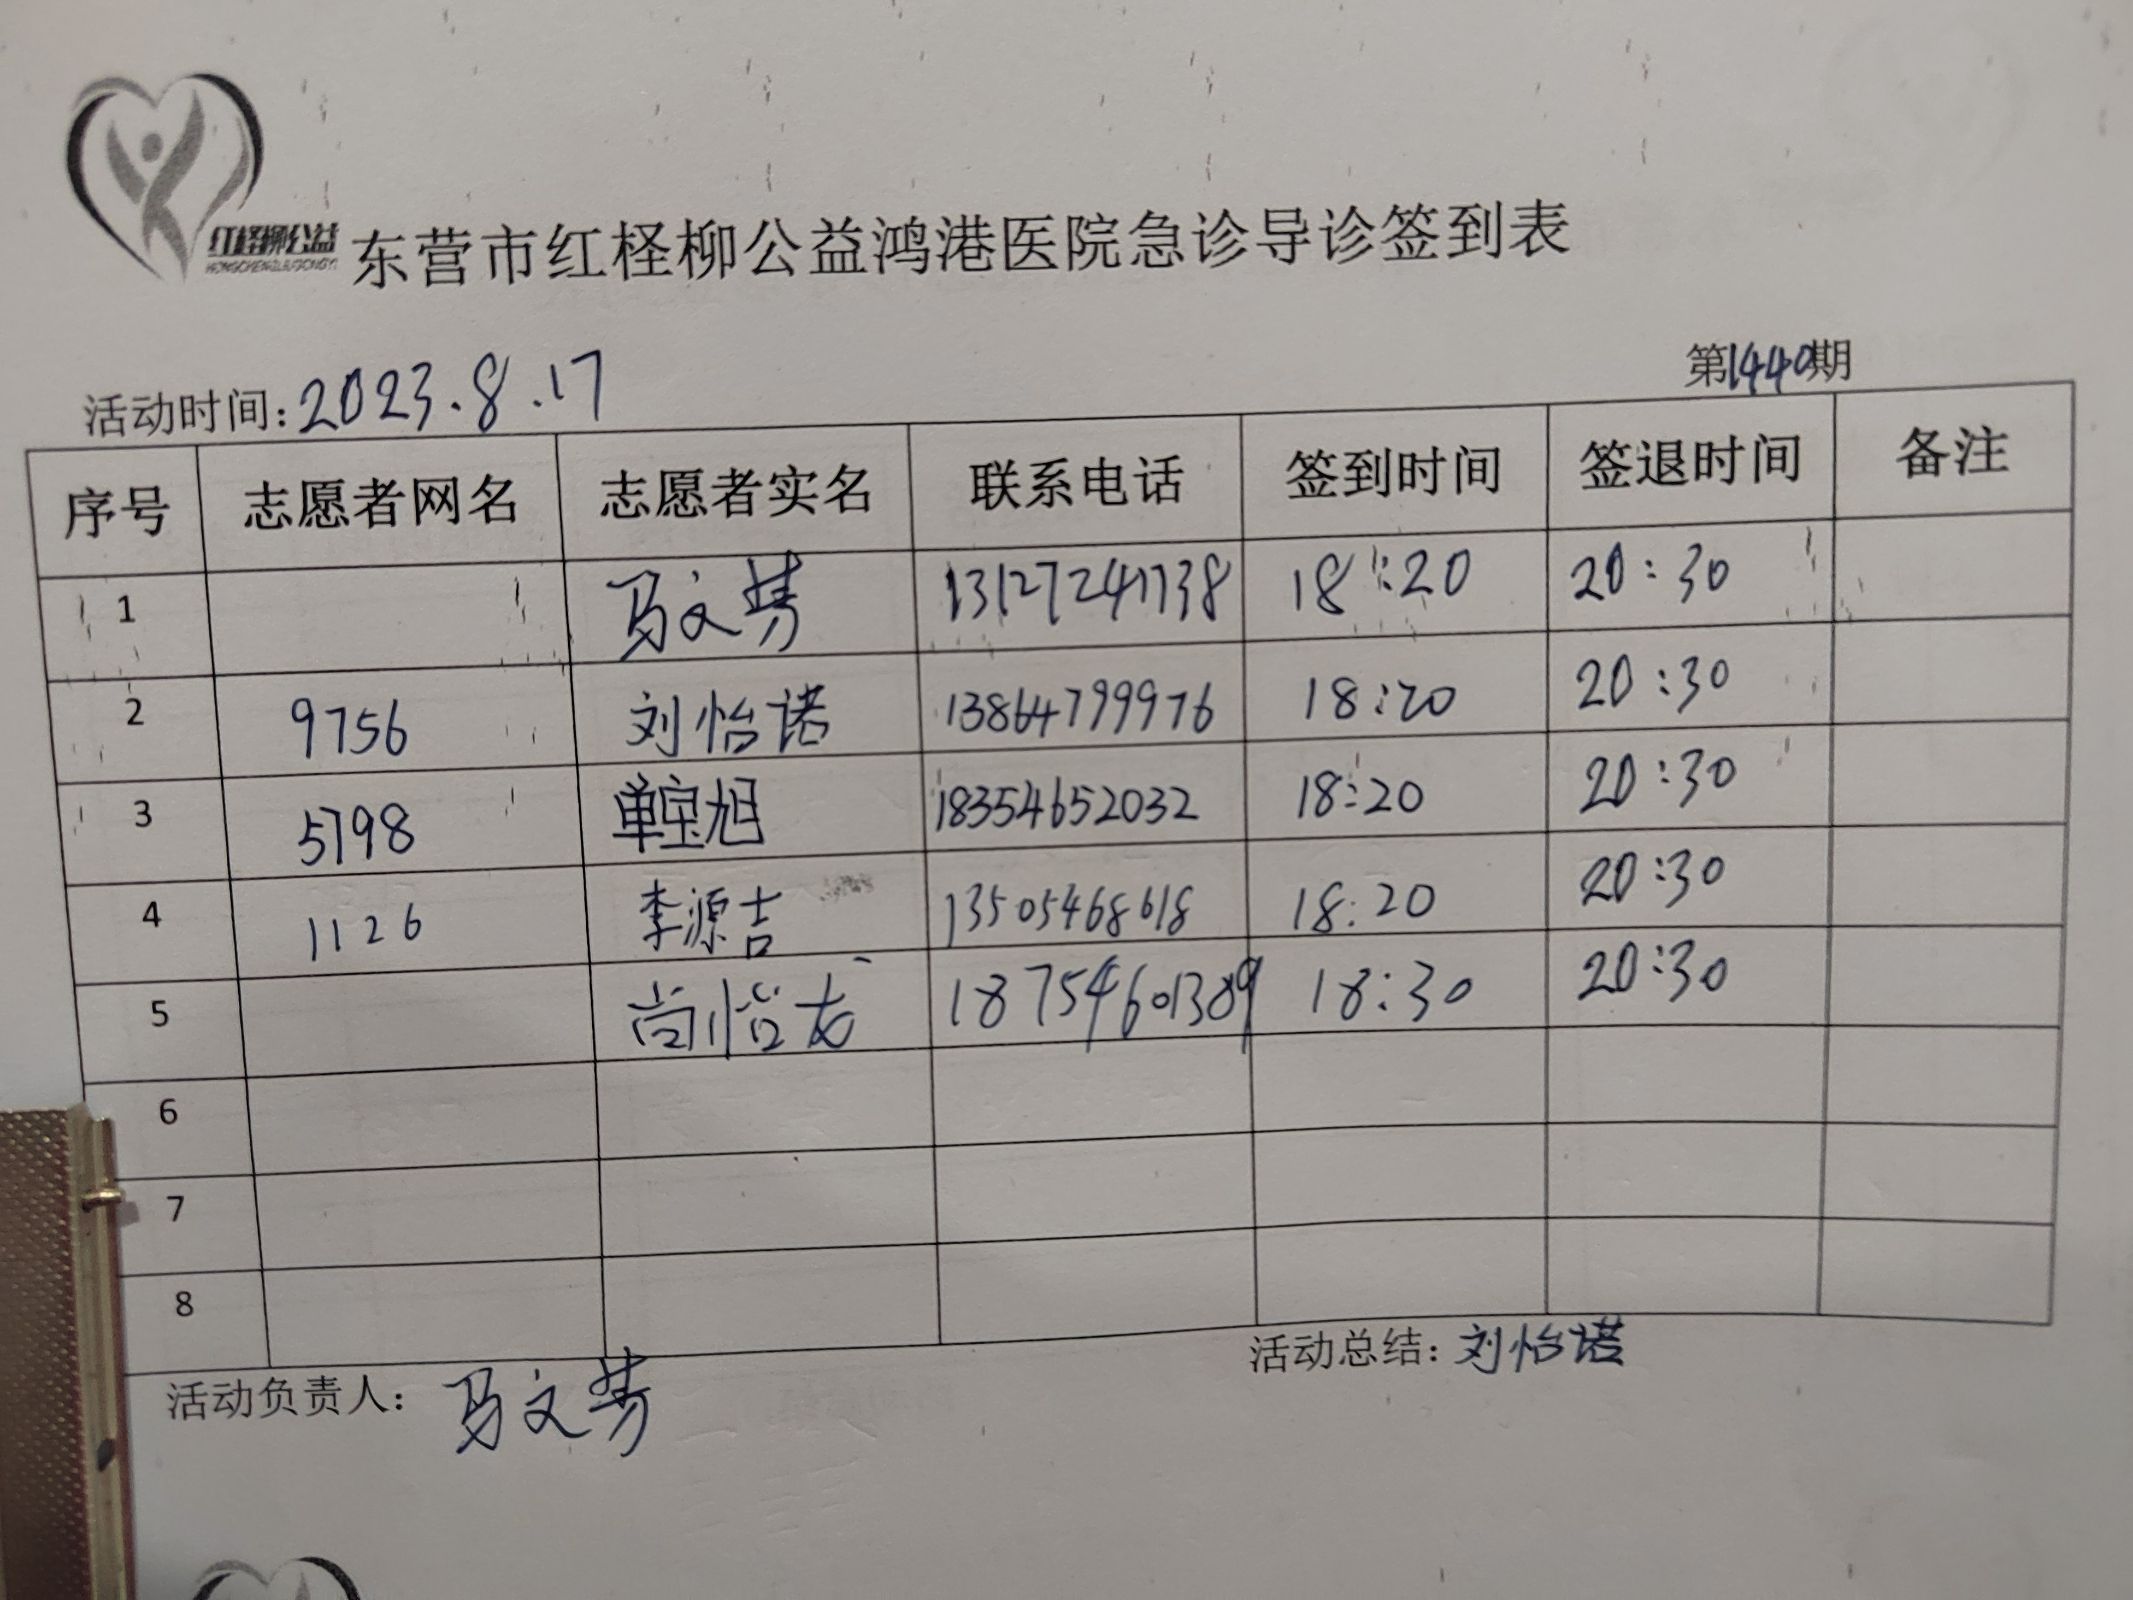 红柽柳公益
HONGCHENGLIUGONGYI
东营市红柽柳公益鸿港医院急诊导诊签到表
活动时间：2023.8.17
第1440期
序号 志愿者网名 志愿者实名 联系电话 签到时间 签退时间 备注
1 马文 13127241738 18:20 20:30
2 9756 刘怡诺 13864799976 18:20 20:30
3 5798 单宝旭 18354652032 18:20 20:30
4 1126 李源吉 13505468618 18:20 20:30
5 尚怡龙 18754601389 18:30 20:30
6
7
8
活动负责人：马文
活动总结：刘怡诺